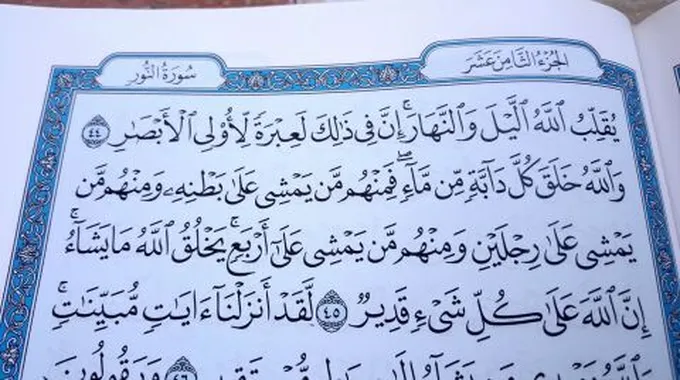 الجزء الثامن عشر
سورة النور
يُقَلِّبُ ٱللَّهُ ٱلَّيْلَ وَٱلنَّهَارَ ۚ إِنَّ فِى ذَٰلِكَ لَعِبْرَةً لِّأُو۟لِى ٱلْأَبْصَٰرِ ٤٤
وَٱللَّهُ خَلَقَ كُلَّ دَآبَّةٍ مِّن مَّآءٍ ۖ فَمِنْهُم مَّن يَمْشِى عَلَىٰ بَطْنِهِۦ وَمِنْهُم مَّن
يَمْشِى عَلَىٰ رِجْلَيْنِ وَمِنْهُم مَّن يَمْشِى عَلَىٰٓ أَرْبَعٍ ۚ يَخْلُقُ ٱللَّهُ مَا يَشَآءُ ۚ
إِنَّ ٱللَّهَ عَلَىٰ كُلِّ شَىْءٍ قَدِيرٌ ٤٥ لَّقَدْ أَنزَلْنَآ ءَايَٰتٍ مُّبَيِّنَٰتٍ ۚ
٤٦ وَيَقُولُونَ